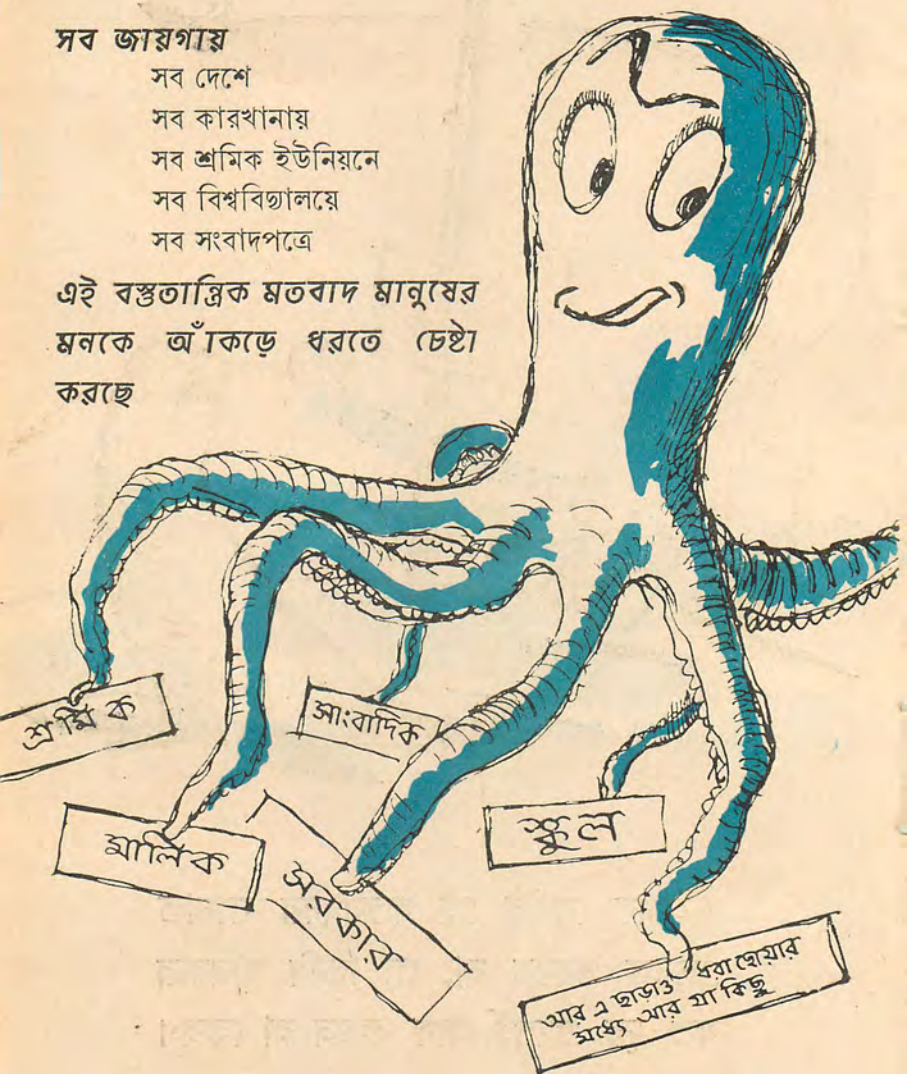 সব জায়গায়
সব দেশে
সব কারখানায়
সব শ্রমিক ইউনিয়নে
সব বিশ্ববিদ্যালয়ে
সব সংবাদপত্রে
এই বস্তুতান্ত্রিক মতবাদ মানুষের
মনকে আঁকড়ে ধরতে চেষ্টা
করছে
শ্রমিক
সাংবাদিক
মালিক
সরকার
স্কুল
আর এ ছাড়াও ধরা ছোয়ার
মধ্যে আর যা কিছু